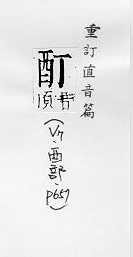 重訂直音篇
酊
頂
(V7·酉部·p657)